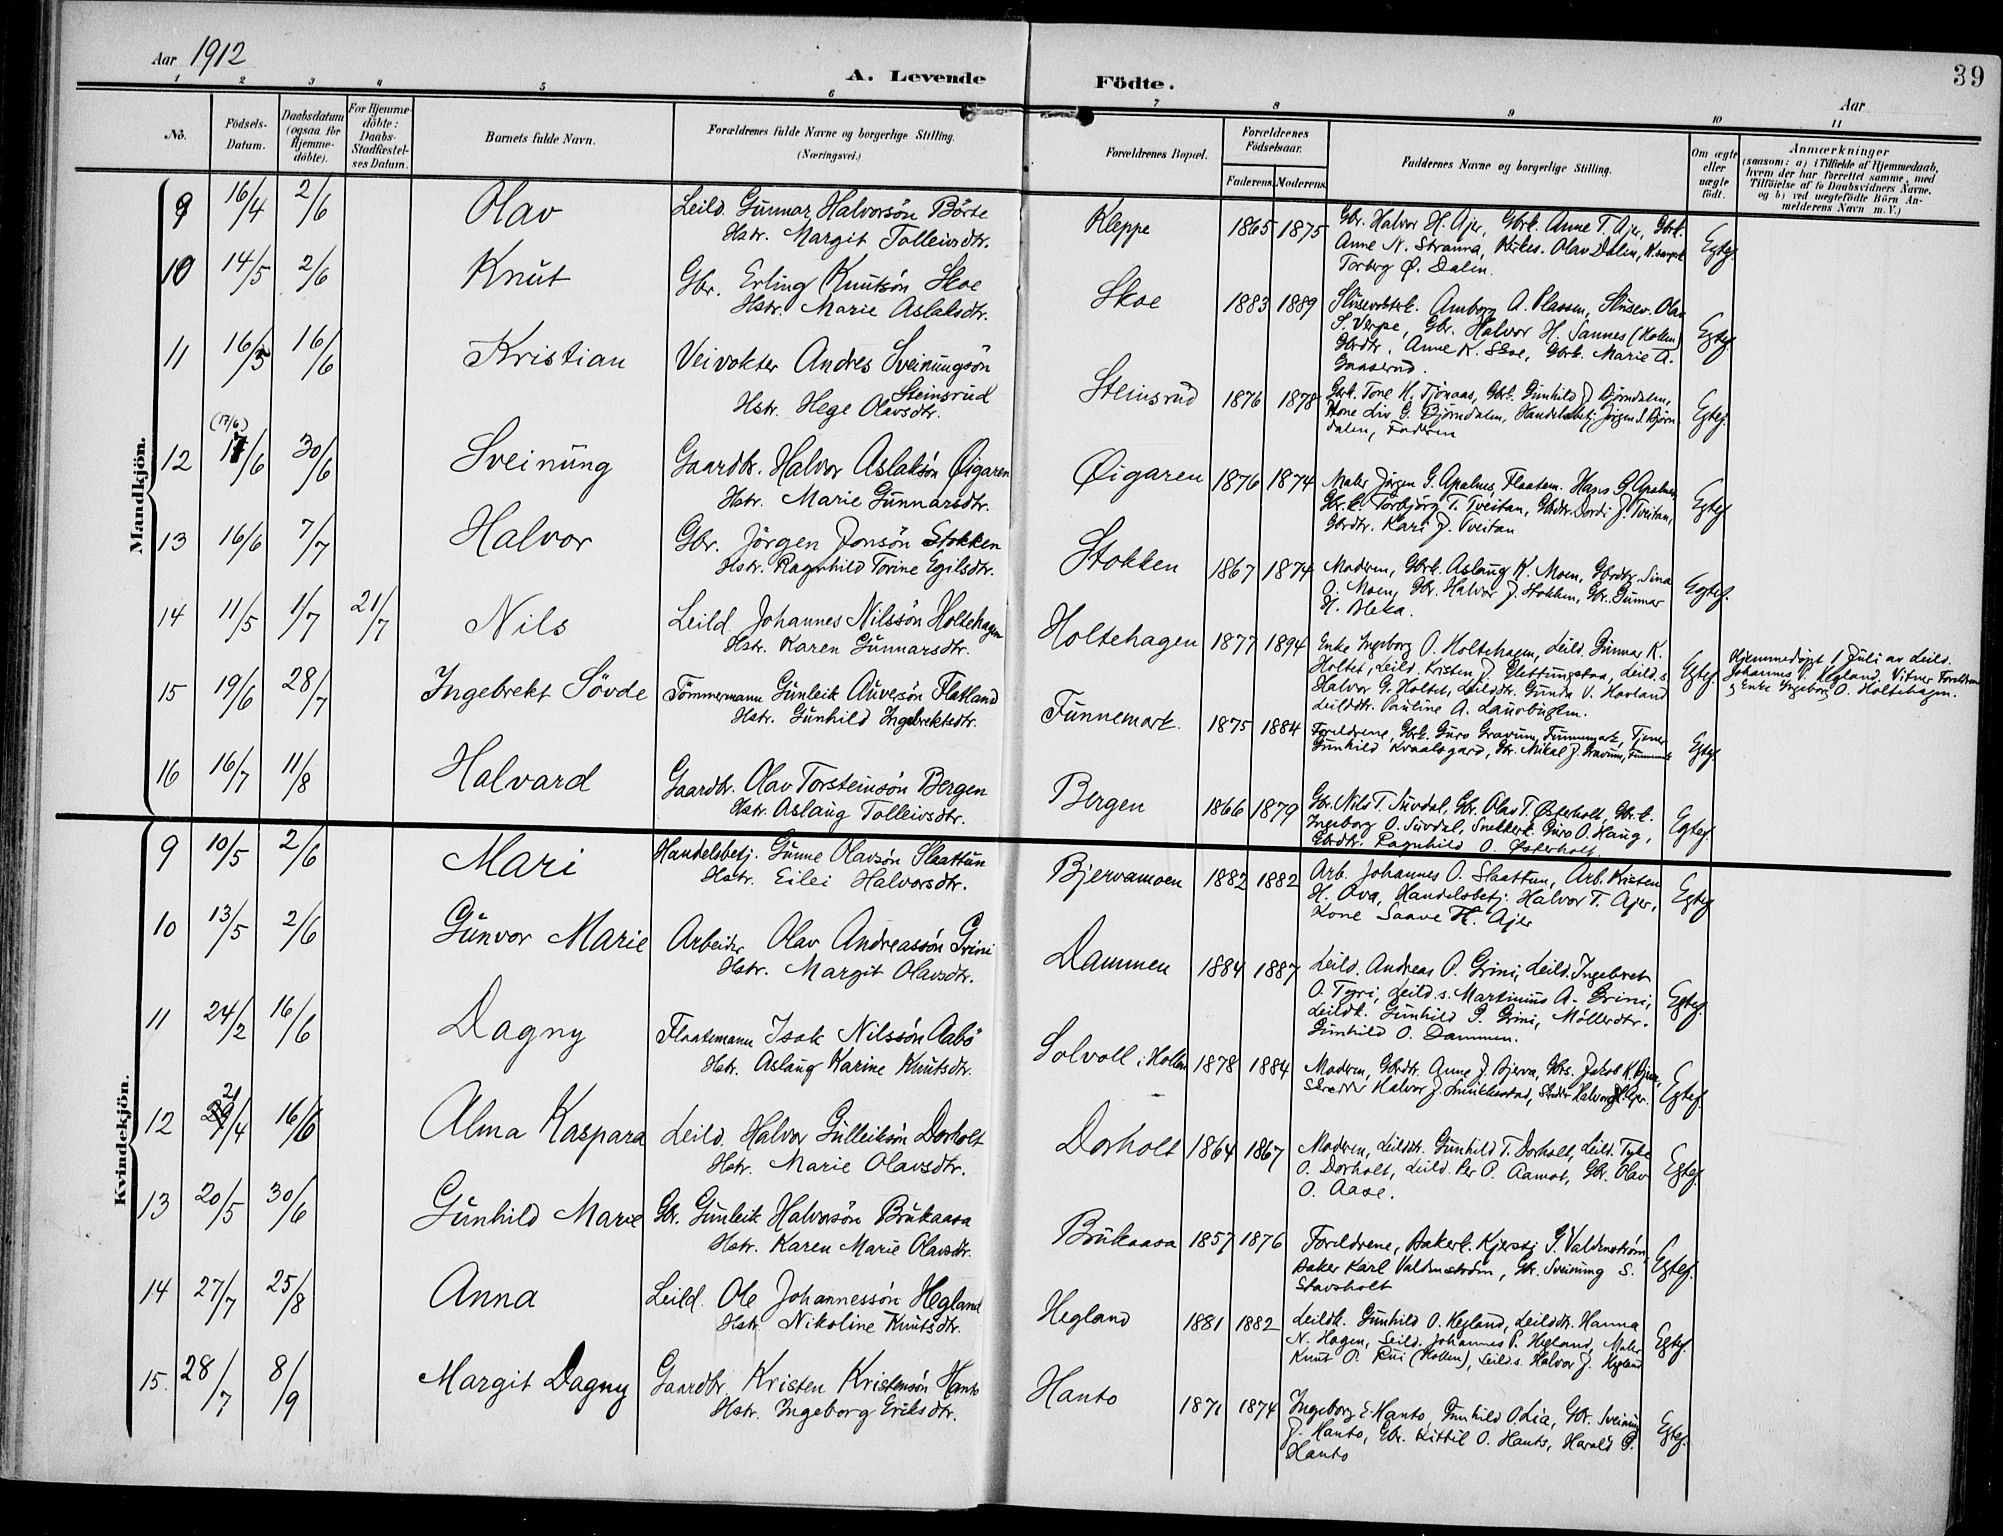 Aar 1912
A. Levende Födte.
39
Aar
1 2 3 4 5 6 7 8 9 10 11
No. Födsels-Datum. Daabsdatum (ogsaa for Hjemmedöbte). For Hjemmedöbte: Daabs-Stadfæstelses Datum. Barnets fulde Navn. Forældrenes fulde Navne og borgerlige Stilling. (Næringsvei.) Forældrenes Bopæl. Forældrenes Födselsaar. Faderens. Moderens. Faddernes Navne og borgerlige Stilling. Om ægte eller uægte födt. Anmærkninger (saasom: a) i Tilfælde af Hjemmedaab, hvem der har forrettet samme, med Tilföielse af to Daabsvidners Navne. og b) ved uægtefödte Börn Anmelderens Navn m. V.)
Mandkjön.
9 16/4 2/6 Olav Leild. Gunnar Halvorsön Börte Kleppe 1865 1875 Gbr. Halvor H. Ajer, Gbrk. Anne T. Ajer, Gbrk. Egtef.
Hstr. Margit Tolleivsdtr. Anne N. Stranna, Kirkes. Olav Dalen,
Torberg Ø. Dalen.
10 14/5 2/6 Knut Gbr. Erling Knutsön Skoe Skoe 1883 1889 Slusevokterk. Amborg A. Plassen, Slusev. Olav Egtef.
Hstr. Marie Aslaksdtr. S. Verpe, Gbr. Halvor H. Sannes (Hollen)
Gbrdtr. Anne K. Skoe, Gbrk. Marie A.
Gaaserud.
11 16/5 16/6 Kristian Veivokter Andres Sveinungsön Steinsrud Steinsrud 1876 1878 Gbrk. Tone H. Tjönaas, Gbrk. Gunhild J. Björndalen, Egtef.
Hstr. Hege Olavsdtr. Kone Liv G. Björndalen, Handelsbetj. Jörgen S. Björn
dalen, Faderen
12 (17/6) 17/6 30/6 Sveinung Gaardbr. Halvor Aslaksön Øigaren Øigaren 1876 1874 Maler Jörgen G. Apalnes, Flaatem. Hans G. Apalnes, Egtef.
Hstr. Marie Gunnarsdtr. Gbrk. Torbjörg T. Tveitan, Gbrdtr. Dordi J. Tveitan,
Gbrdtr. Kari J. Tveitan
13 16/6 7/7 Halvor Gbr. Jörgen Jonsön Stokken Stokken 1867 1874 Moderen, Gbrk. Aslaug K. Moen, Gbrdtr. Sina Egtef.
Hstr. Ragnhild Torine Egilsdtr. O. Moen, Gbr. Halvor J. Stokken, Gbr. Gunnar
H. Sleka.
14 11/5 1/7 21/7 Nils Leild. Johannes Nilssön Holtehagen Holtehagen 1877 1894 Enke Ingeborg O. Holtehagen, Leild. Gunnar K. Egtef. Hjemmedöpt 1 Juli av Leild.
Hstr. Karen Gunnarsdtr. Holtet, Leild. Kristen J. Glettungstaa, Leild.s. Johannes P. Hegland. Vitner Foreldrene
Halvor G. Holtet, Leilddtr. Gunda V. Havland og Enke Ingeborg O. Holtehagen.
Leilddtr. Pauline A.
15 19/6 28/7 Ingebrekt Sövde Tömmermann Gunleik Auvesön Flatland Funnemark. 1875 1884 Foreldrene, Gbrk. Guro Gravum, Funnemark, Tjener Egtef.
Hstr. Gunhild Ingebrektsdtr. Gunhild Kvaalsgard, Gbr. Mikal J. Gravum, Funnemark
16 16/7 11/8 Halvard Gaardbr. Olav Torsteinsön Bergen Bergen 1866 1879 Gbr. Nils T. Juvdal, Gbr. Olav T. Østerholt, Gbr.k. Egtef.
Hstr. Aslaug Tolleivsdtr. Ingeborg O. Juvdal, Snekkerk. Guro O. Haug,
Gbrdtr. Ragnhild O. Østerholt.
Kvindekjön.
9 10/5 2/6 Mari Handelsbetj. Gunne Olavsön Slaattun Bjervamoen 1882 1882 Arb. Johannes O. Slaattun, Arb. Kristen Egtef.
Hstr. Eilei Halvorsdtr. H. Ova, Handelsbetj. Halvor T. Ajer,
Kone Saave H. Ajer
10 13/5 2/6 Gunvor Marie Arbeider Olav Andreassön Grini Dammen 1884 1887 Leild. Andreas O. Grini, Leild. Ingebret Egtef.
Hstr. Margit Olavsdtr. O. Tyri, Leild.s. Martinius A. Grini,
Leildk. Gunhild P. Grini, Möllerdtr.
Gunhild O. Dammen.
11 24/2 16/6 Dagny Flaatemann Isak Nilssön Aabö Solvoll i Hollen 1878 1884 Moderen, Gbrdtr. Anne J. Bjerva, Gbrs. Jakob K. Bjerva, Egtef.
Hstr. Aslaug Karine Knutsdtr. Skredder Halvor J. Smukkestad,
12 21/4 16/6 Alma Kaspara Leild. Halvor Gulleiksön Dorholt Dorholt 1864 1867 Moderen, Leilddtr. Gunhild T. Dorholt, Leild. Tyke Egtef.
Hstr. Marie Olavsdtr. O. Dorholt, Leild. Per O. Aamot, Gbr. Olav
O. Aase.
13 20/5 30/6 Gunhild Marie Gbr. Gunleik Halvorsön Brukaasa Brukaasa 1857 1876 Foreldrene, Bakerk. Kjersti G. Valdenström, Egtef.
Hstr. Karen Marie Olavsdtr. Baker Karl Valdenström, Gbr. Sveinung S.
Stavsholt
14 27/7 25/8 Anna Leild. Ole Johannessön Hegland Hegland 1881 1882 Leildk. Gunhild O. Hegland, Leilddtr. Hanna Egtef.
Hstr. Nikoline Knutsdtr. N. Hagen, Leild. Johannes P. Hegland, Maler
Knut O. Rui (Hollen), Leild.s. Halvor J. Hegland
15. 28/7 8/9 Margit Dagny Gaardbr. Kristen Kristensön Hanto Hanto 1871 1874 Ingeborg E. Hanto, Gunhild O. Lia, Gbr. Sveinung Egtef.
Hstr. Ingeborg Eriksdtr. J. Hanto, Gbr. Kittil O. Hanto, Harald G.
Hanto